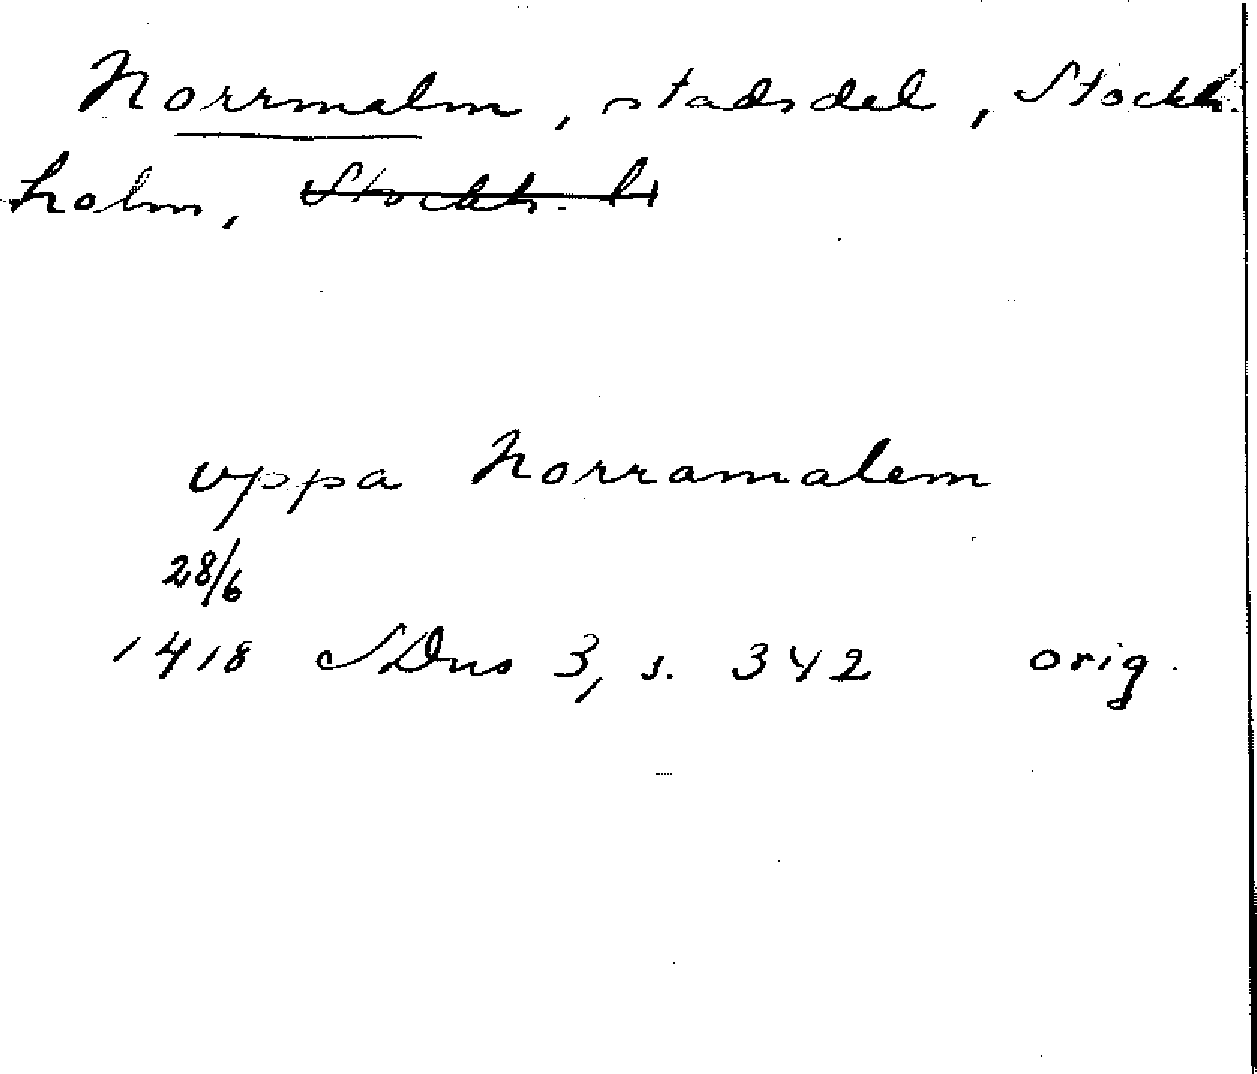 Norrmalm, stadsdel, Stockh.
holm, Stockh. l
uppa Norramalem
28/6
1418 SDns 3, s. 342 orig.